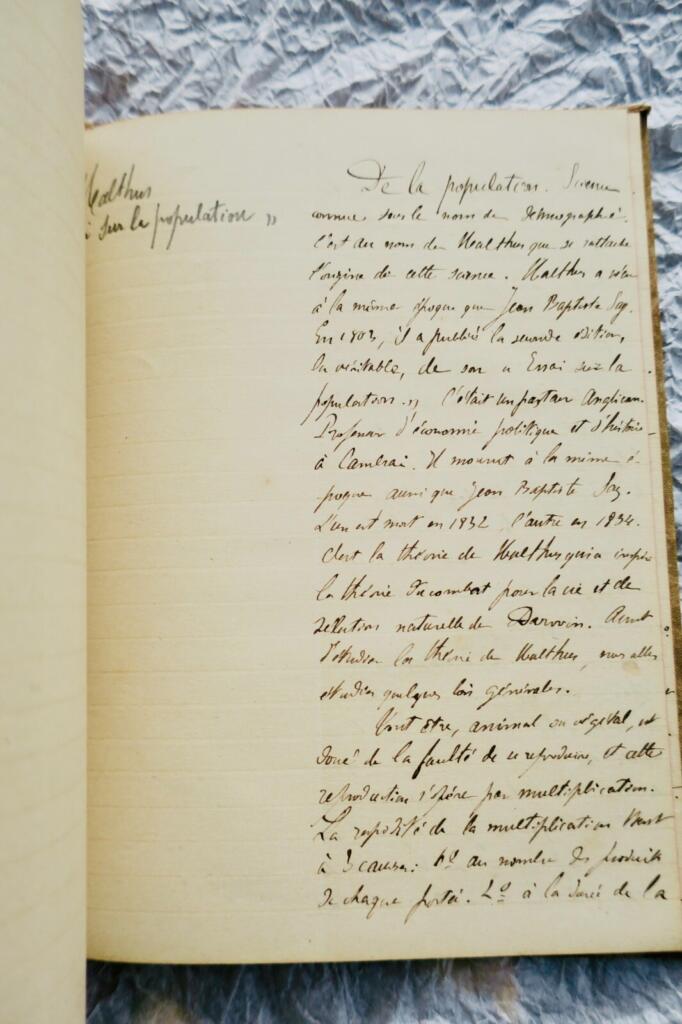 Malthus
sur la population »
De la population. Science
connue sous le nom de démographie.
C'est au nom de Malthus que se rattache
l'origine de cette science. Malthus a vécu
à la même époque que Jean Baptiste Say.
En 1803, il a publié la seconde édition,
la véritable, de son « Essai sur la
population. » C'était un pasteur Anglican.
Professeur d'économie politique et d'histoire
à Cambrai. Il mourut à la même é-
poque aussi que Jean Baptiste Say.
L'un est mort en 1832, l'autre en 1834.
C'est la théorie de Malthus qui a inspiré
la théorie du combat pour la vie et de
sélection naturelle de Darwin. Avant
d'étudier la théorie de Malthus, nous allons
étudier quelques lois générales.
Tout être, animal ou végétal, est
doué de la faculté de se reproduire, et cette
reproduction s'opère par multiplication.
La rapidité de la multiplication tient
à 3 causes: 1º au nombre des produits
de chaque portée. 2º à la durée de la